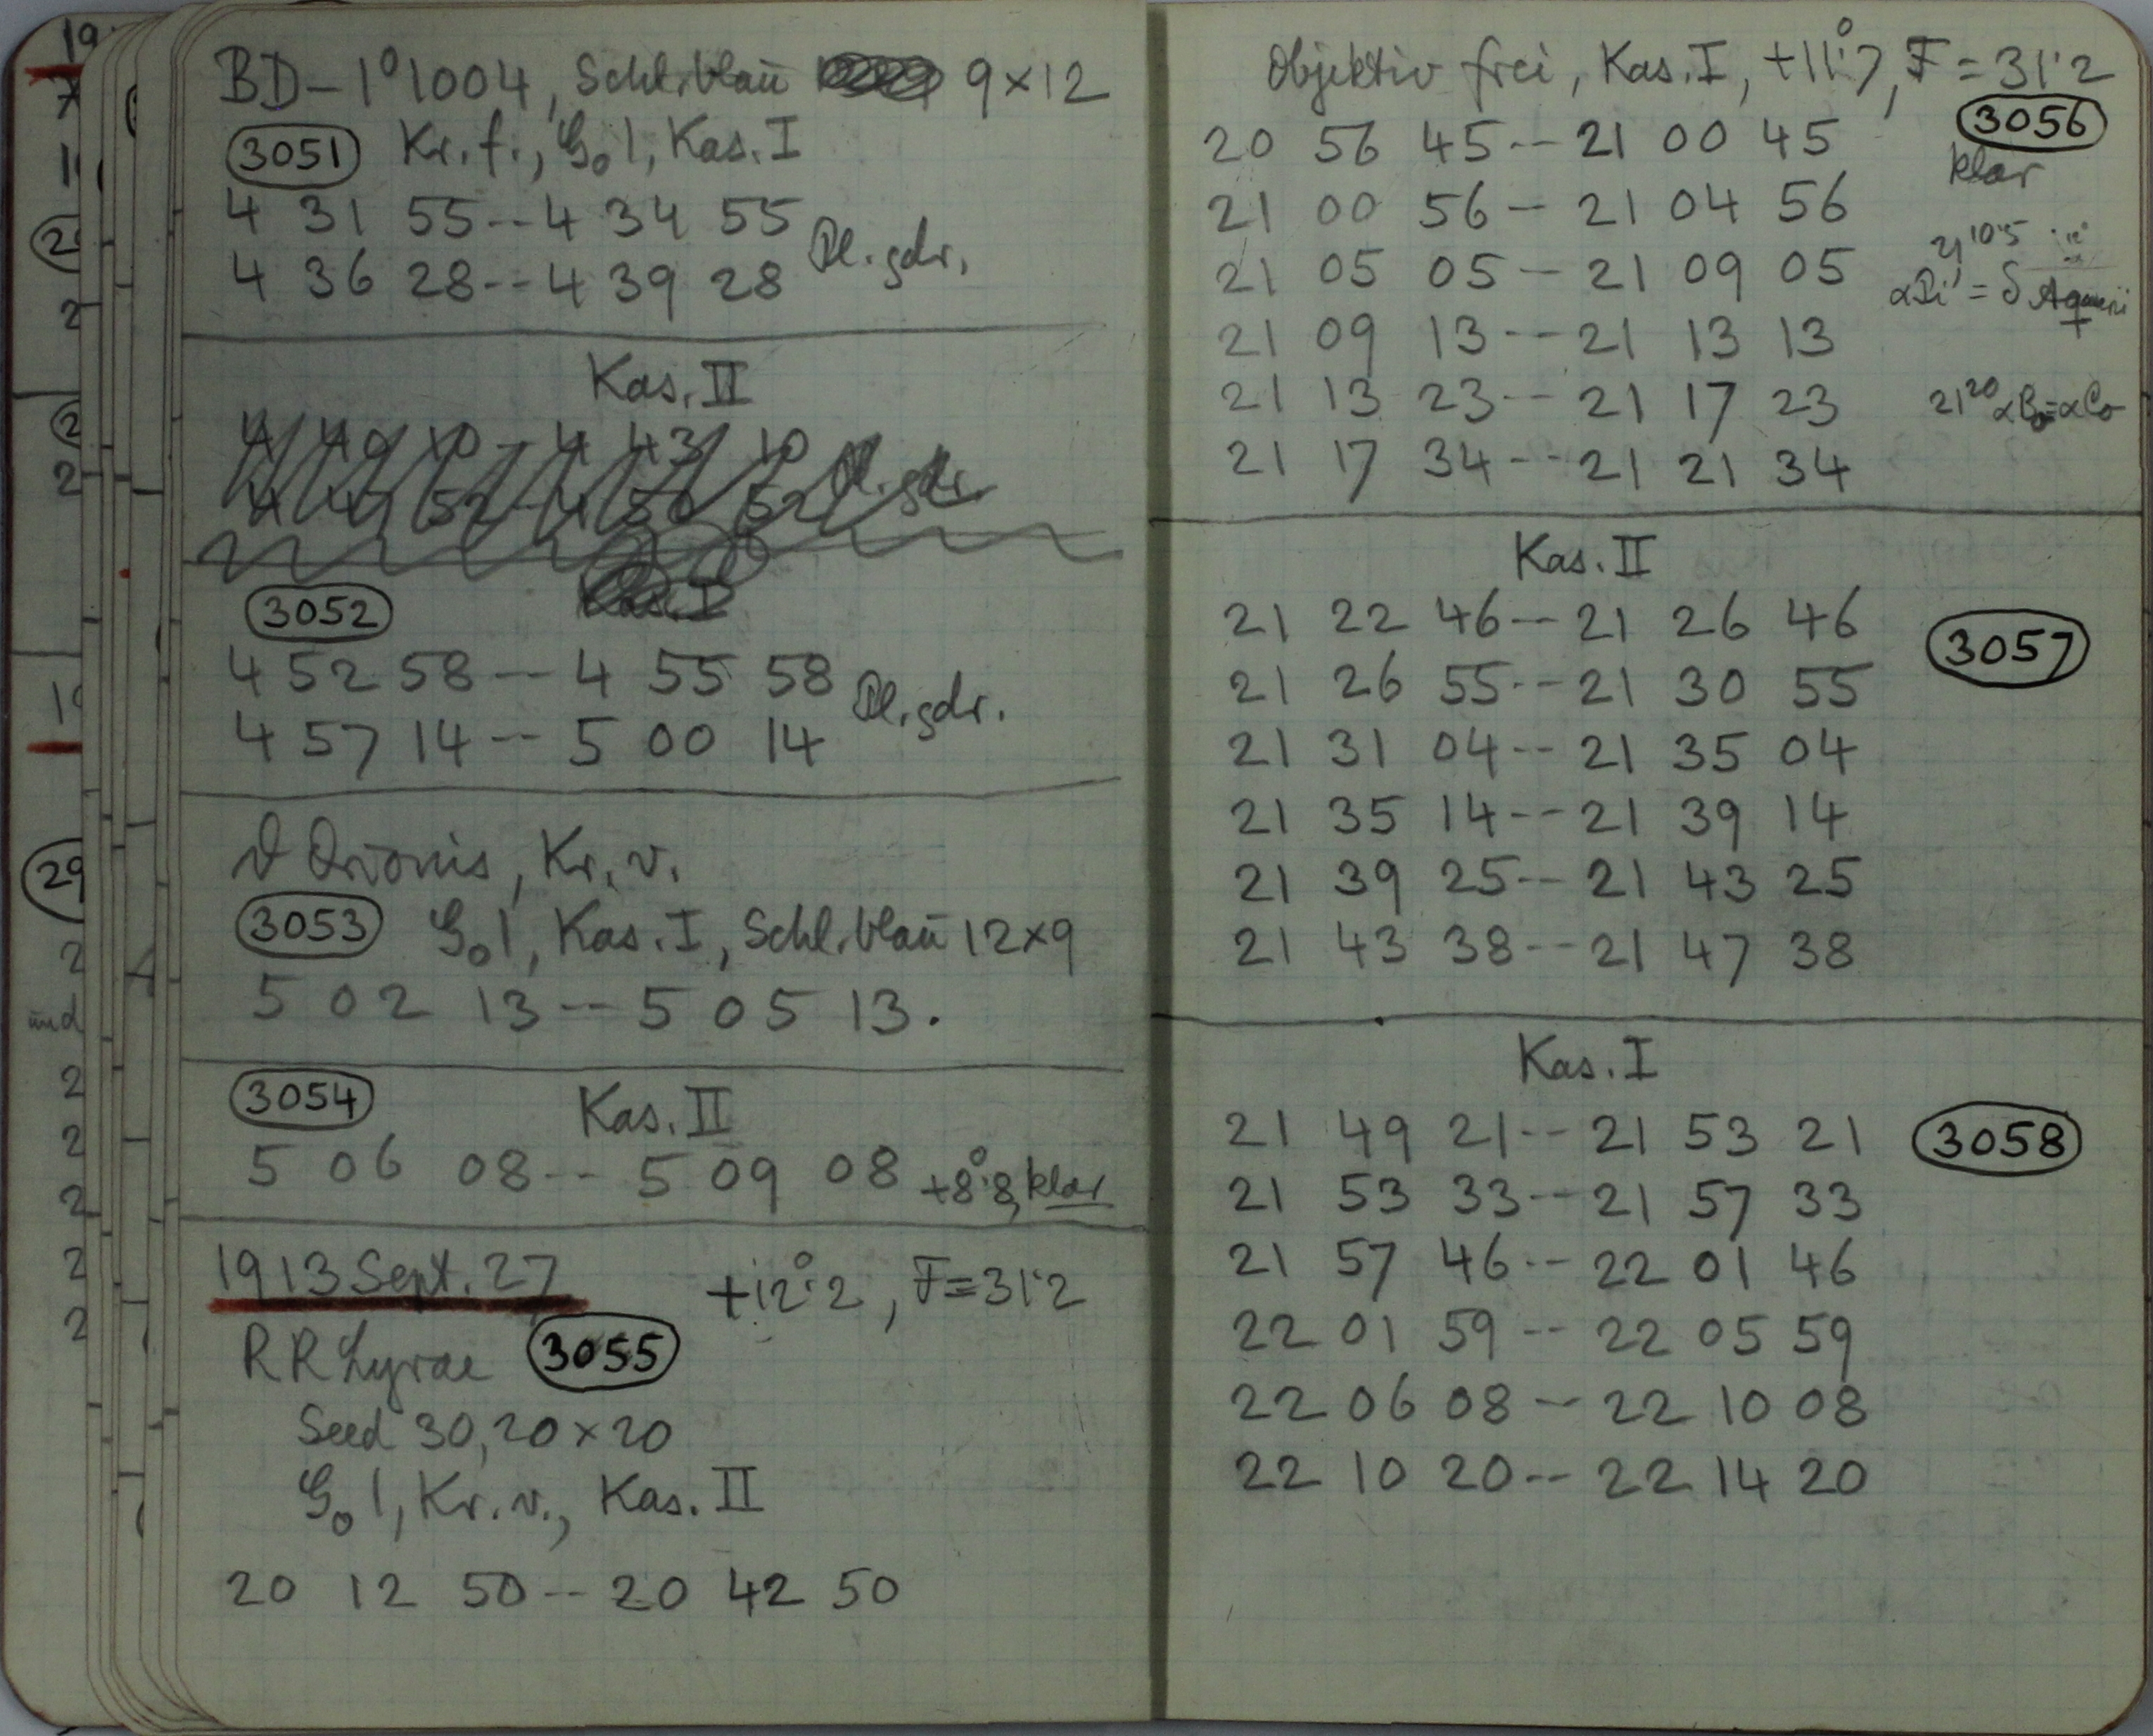 BD-1°1004, Schl. blau 9×12
3051 Kr. f., G₀1, Kas. I
4 31 55--4 34 55
4 36 28--4 39 28 Pl. gdr.
Kas. II
4 52 58--4 55 58
4 57 14--5 00 14 Pl. gdr.
3052
ϑ Orionis, Kr. v.
3053 G₀1, Kas. I, Schl. blau 12×9
5 02 13--5 05 13.
3054 Kas. II
5 06 08--5 09 08 +8°.8, klar
1913 Sept. 27 +12°.2, F=31.2
RR Lyrae 3055
Seed 30, 20×20
G₀1, Kr. v., Kas. II
20 12 50--20 42 50
Objektiv frei, Kas. I, +11°.7, F=31.2
20 56 45--21 00 45 3056
klar
21 00 56--21 04 56
21 10.5
21 05 05--21 09 05
21 09 13--21 13 13
21 13 23--21 17 23
21 17 34--21 21 34
Kas. II
21 22 46--21 26 46 3057
21 26 55--21 30 55
21 31 04--21 35 04
21 35 14--21 39 14
21 39 25--21 43 25
21 43 38--21 47 38
Kas. I
21 49 21--21 53 21 3058
21 53 33--21 57 33
21 57 46--22 01 46
22 01 59--22 05 59
22 06 08--22 10 08
22 10 20--22 14 20